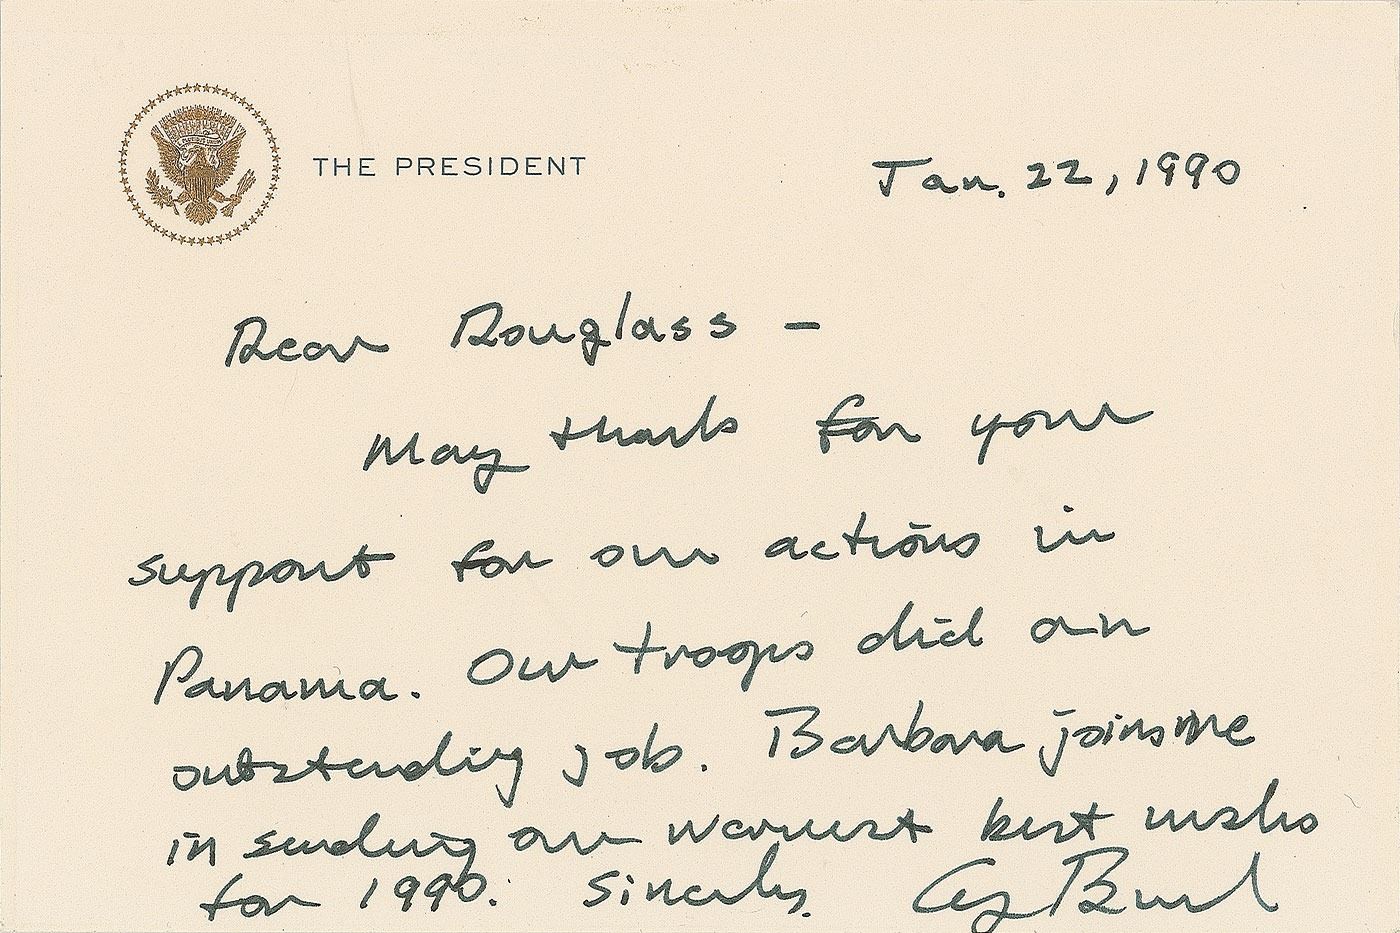 THE PRESIDENT
Jan. 22, 1990
Dear Douglass -
Many thanks for your
support for our actions in
Panama. Our troops did an
outstanding job. Barbara joins me
in sending our warmest best wishes
for 1990. Sincerely, Gg Bush